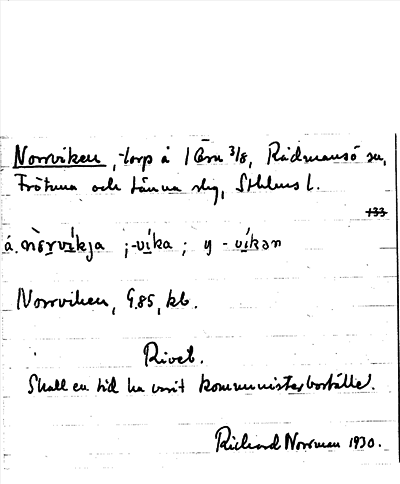 Norrviken, torp å 1 Öru 3/8, Rådmansö sn,
Frötuna och Länna slg, Sthlms l.
133
å. nòrvíkja ; -víka ; y -víkən
Norrviken, G.85, kb.
Rivet.
Skall en tid ha varit kommunisterboställe.
Richard Norrman 1930.